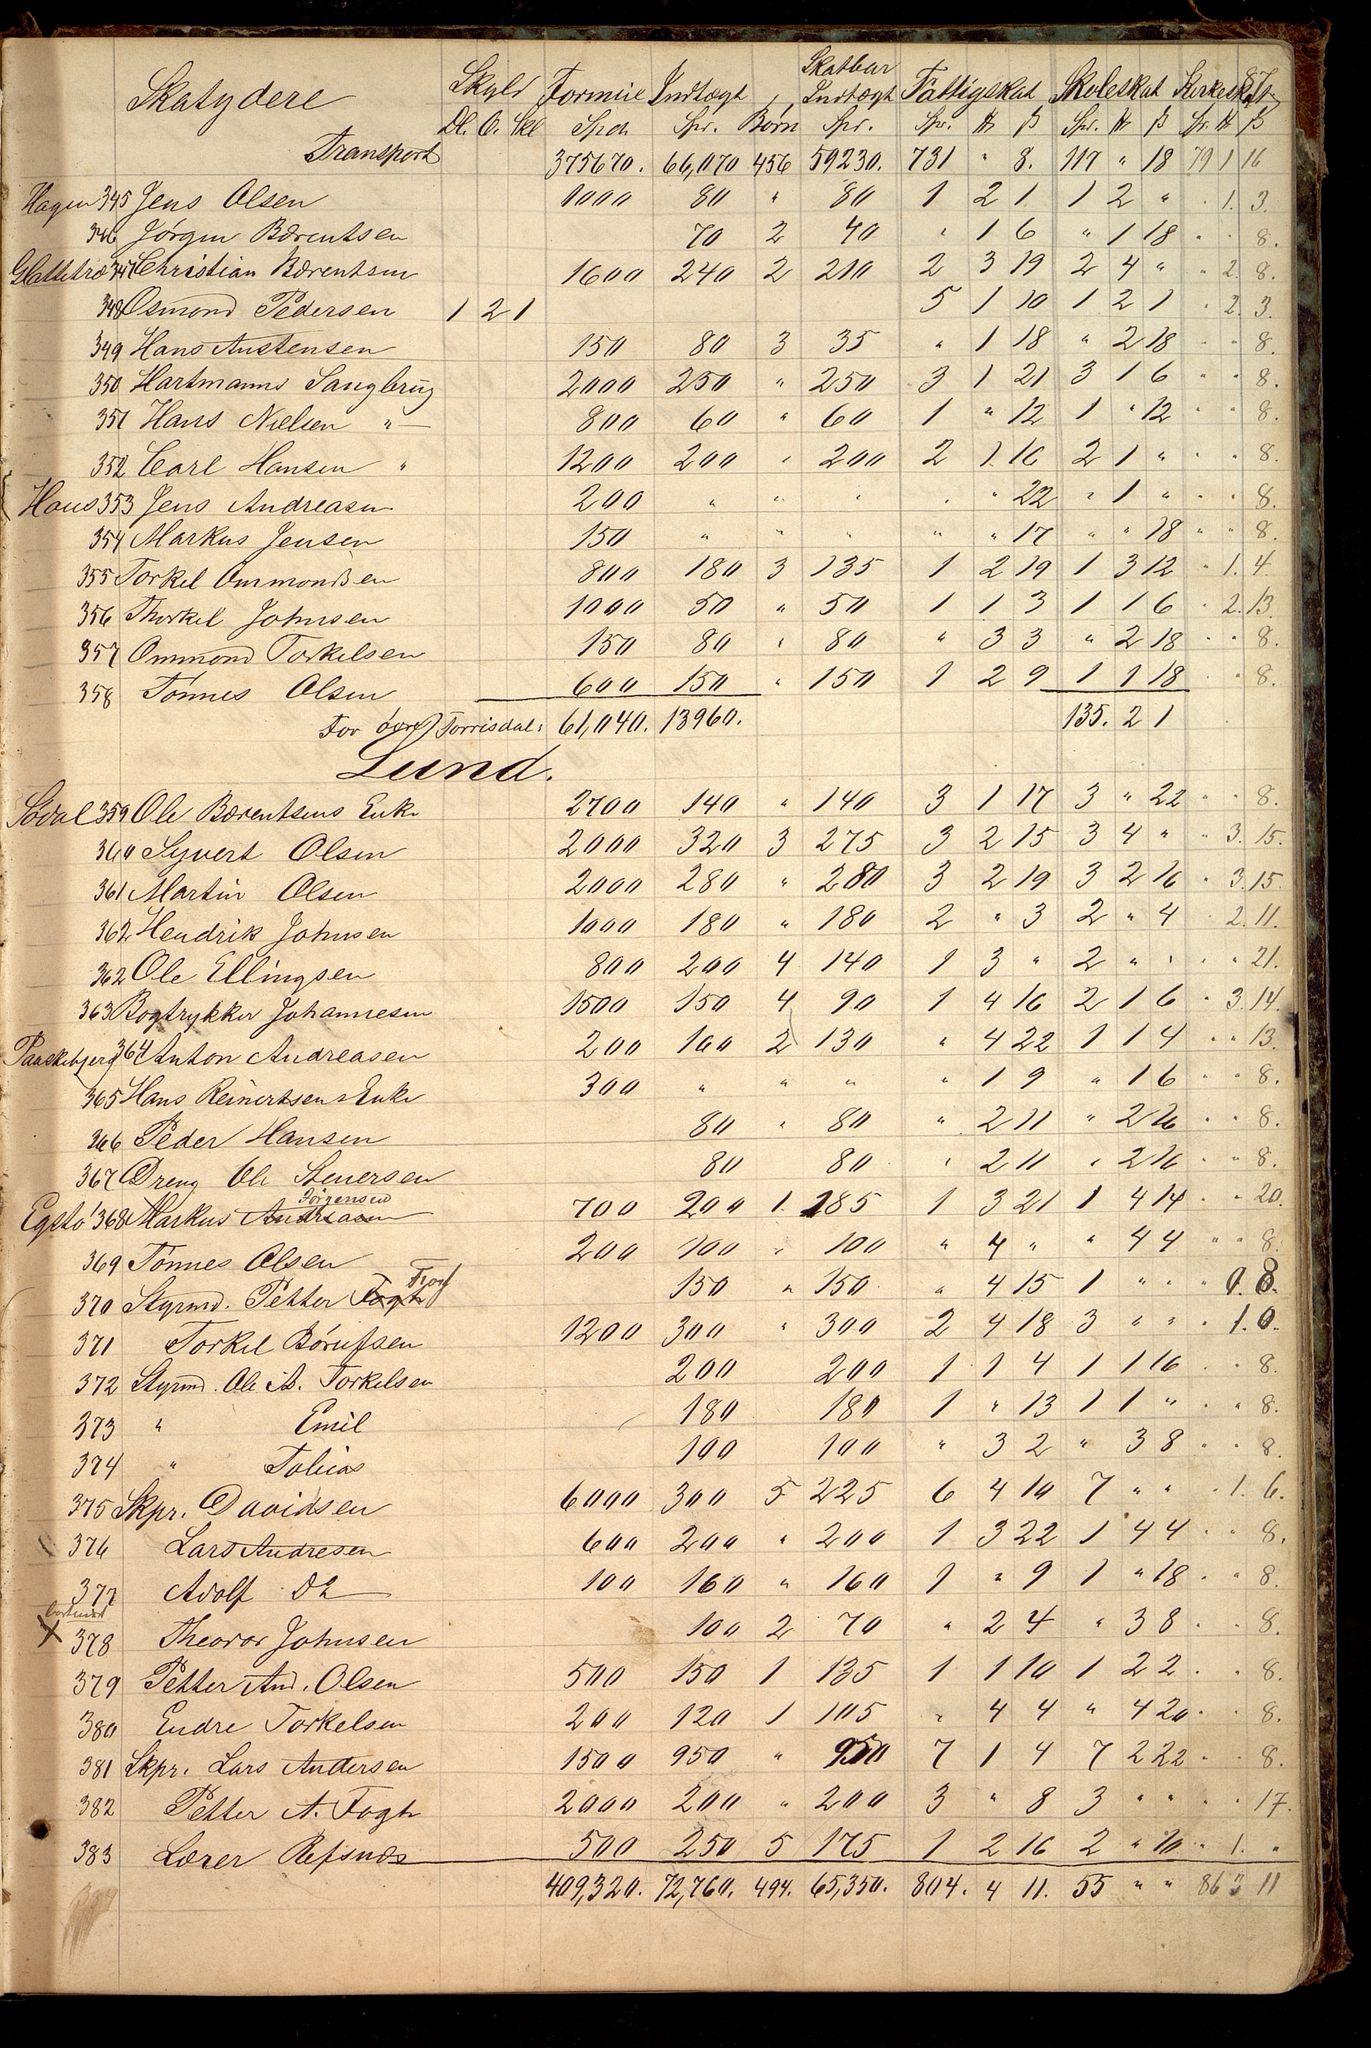 Skatydere Skyld Formue Indtægt " Skatbar Indtægt Fattigskat Skoleskat Kirkesk.
Dl. O. Skl Spd. Spr. Børn Spr. Spr. # ß Spr. # ß Spr. # ß
Transport 375670. 66,070 456 59230. 731 " 8. 117 " 18 79 1 16
Hagen 345 Jens Olsen 1000 80 " 80 1 2 1 1 2 " . 1. 3.
346 Jørgen Bærentsen 70 2 40 " 1 6 " 1 18 " " 8.
Glattetræ 347 Christian Bærentsen 1600 240 2 210 2 3 19 2 4 " " 2. 8.
348 Osmond Pedersen 1 2 1 5 1 10 1 2 1 . 2. 3.
349 Hans Austensen 150 80 3 35 " 1 18 " 2 18 " " 8.
350 Hartmanns Saugbrug 2000 250 " 250 3 1 21 3 1 6 " " 8.
351 Hans Nielsen " 800 60 " 60 1 " 12 1 " 12 " " 8.
352 Carl Hansen " 1200 200 " 200 2 1 16 2 1 " " " 8.
Haus 353 Jens Andreasen 200 " " " " " 22 " 1 " " " 8.
354 Markus Jensen 150 " " " " " 17 " " 18 " " 8.
355 Torkel Ommondsen 800 180 3 135 1 2 19 1 3 12 " 1. 4.
356 Thorkel Johnsen 1000 50 " 50 1 1 3 1 1 6 . 2. 13.
357 Ommond Torkelsen 150 80 " 80 " 3 3 " 2 18 " " 8.
358 Tønnes Olsen 600 150 " 150 1 2 9 1 1 18 " " 8.
For Torrisdal: 61,040. 13960. 135. 2 1
Lund.
Sødal 359 Ole Bærentsens Enke 2700 140 " 140 3 1 17 3 " 22 " " 8.
360 Syvert Olsen 2000 320 3 275 3 2 15 3 4 " " 3. 15.
361 Martin Olsen 2000 280 " 280 3 2 19 3 2 16 " 3. 15.
362 Hendrik Johnsen 1000 180 " 180 2 " 3 2 " 4 . 2. 11.
362 Ole Ellingsen 800 200 4 140 1 3 " 2 " " " " 21.
363 Bogtrykker Johannesen 1500 150 4 90 1 4 16 2 1 6 " 3. 14.
Paaskebjerg 364 Anton Andreasen 200 160 2 130 " 4 22 1 1 4 " " 13.
365 Hans Reinertsens Enke 300 " " " " 1 9 " 1 6 " " 8.
366 Peder Hansen 80 " 80 " 2 11 " 2 16 " " 8.
367 Dreng Ole Steuersen 80 80 " 2 11 " 2 16 " " 8.
Jørgensen
Egstø 368 Markus Andreasen 700 200 1. 185 1 3 21 1 4 14 " " 20.
369 Tønnes Olsen 200 100 " 100 " 4 " " 4 4 " " 8.
370 Styrmd. Petter Fogh 150 " 150 " 4 15 1 " " " 0. 8.
371 Torkel Børufsen 1200 300 " 300 2 4 18 3 " " " 1. 0.
372 Styrmd. Ole A. Torkelsen 200 200 1 1 4 1 1 16 " " 8.
373 " Emil 180 180 1 " 13 1 1 " " " 8.
374 " Tobias 100 100 " 3 2 " 3 8 " " 8.
375 Skpr. Davidsen 6000 300 5 225 6 4 10 7 " " " 1. 6.
376 Lars Andresen 600 200 " 200 1 3 22 1 4 4 " " 8.
377 Adolf Do 100 160 " 160 1 " 9 1 " 18 " " 8.
X 378 Theodor Johnsen 100 2 70 " 2 4 " 3 8 " " 8.
379 Petter And. Olsen 500 150 1 135 1 1 10 1 2 2 " " 8.
380 Endre Torkelsen 200 120 1 105 " 4 4 " 4 20 " " 8.
381 Skpr. Lars Andersen 1500 950 " 950 7 1 4 7 2 22 " " 8.
382 Petter A. Fogh 2000 200 " 200 3 " 8 3 " " " " 17.
383 Lærer Refsnæs 500 250 5 175 1 2 16 2 " 10 " 1. "
409,320. 72,760. 494. 65,350. 804. 4 11. 55 " " 86 3 11